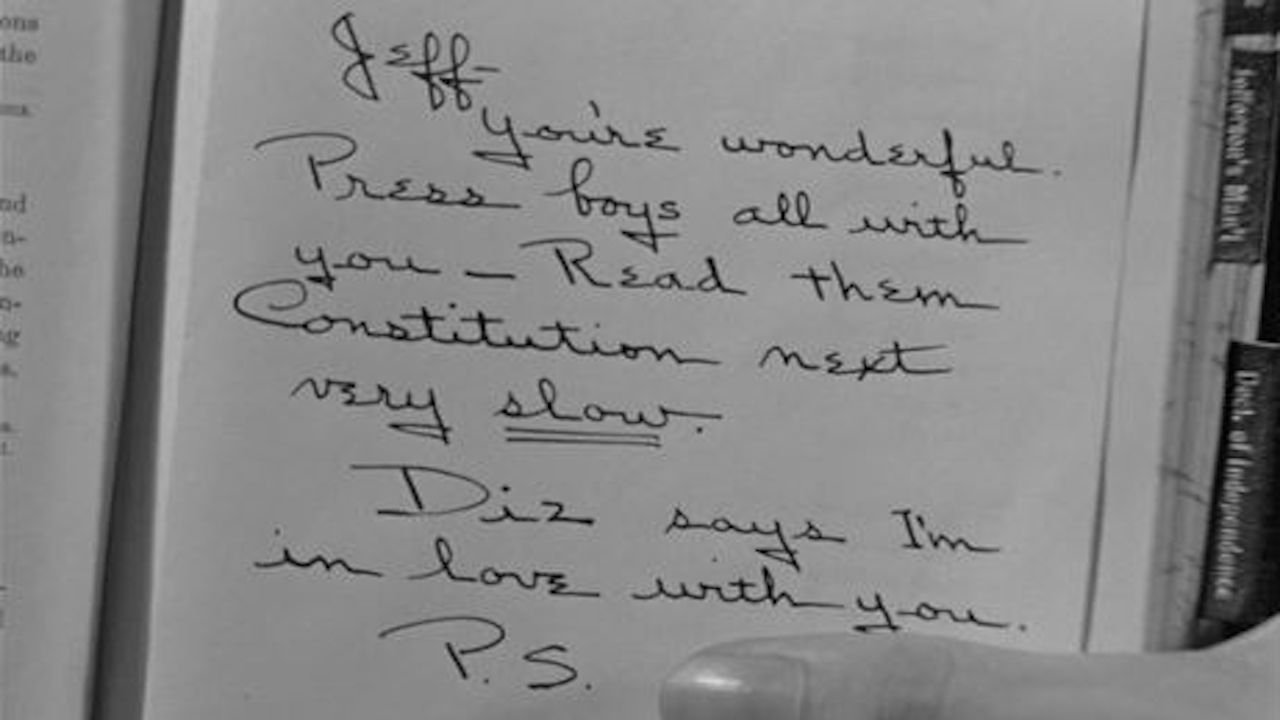 ons
the
nd
n-
he
n-
ng
Jeff-
you're wonderful.
Press boys all with
you – Read them
Constitution next
very slow.
Diz says I'm
in love with you.
P.S.
Jefferson's Man'l
Decl. of Independence